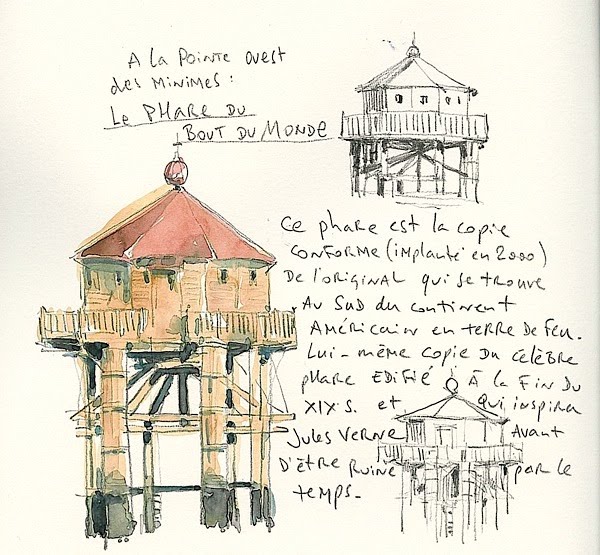 A la Pointe ouest
des Minimes :
Le Phare du
Bout du Monde
Ce phare est la copie
conforme (implanté en 2000)
de l'original qui se trouve
au sud du continent
Américain en terre de feu.
Lui-même copie du célèbre
phare edifié à la fin du
XIXs. et qui inspira
Jules Verne avant
d'être ruiné par le
temps.